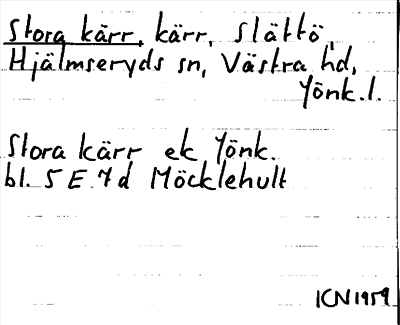 Stora kärr, kärr, Slättö,
Hjälmseryds sn, Västra hd,
Jönk.l.
Stora kärr ek Jönk.
bl. 5 E 7 d Möcklehult
ICN 1959